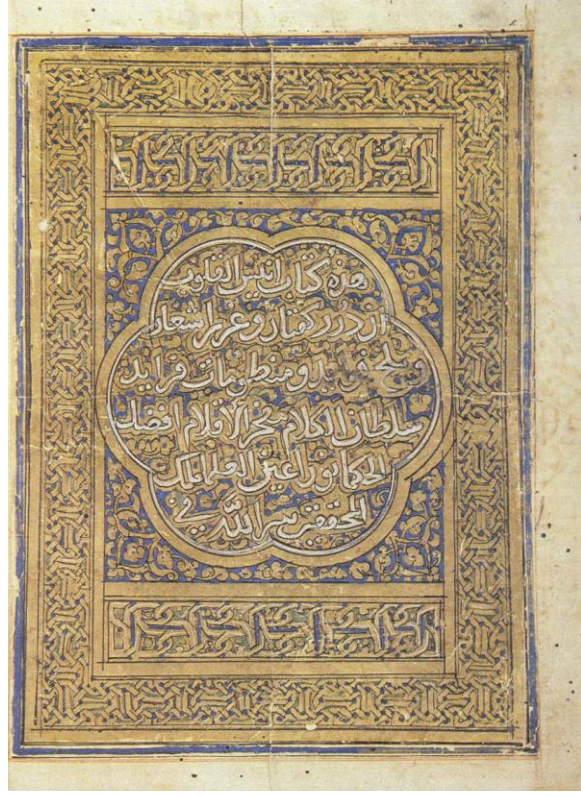 هذه كتاب انيس القلوب
از درر كفتار و غرر اشعار
و منظومات فرايد
سلطان الكلام فخر الاقلام افضل
الحكما نور اعين العلما ملك
المحققين سر الله في